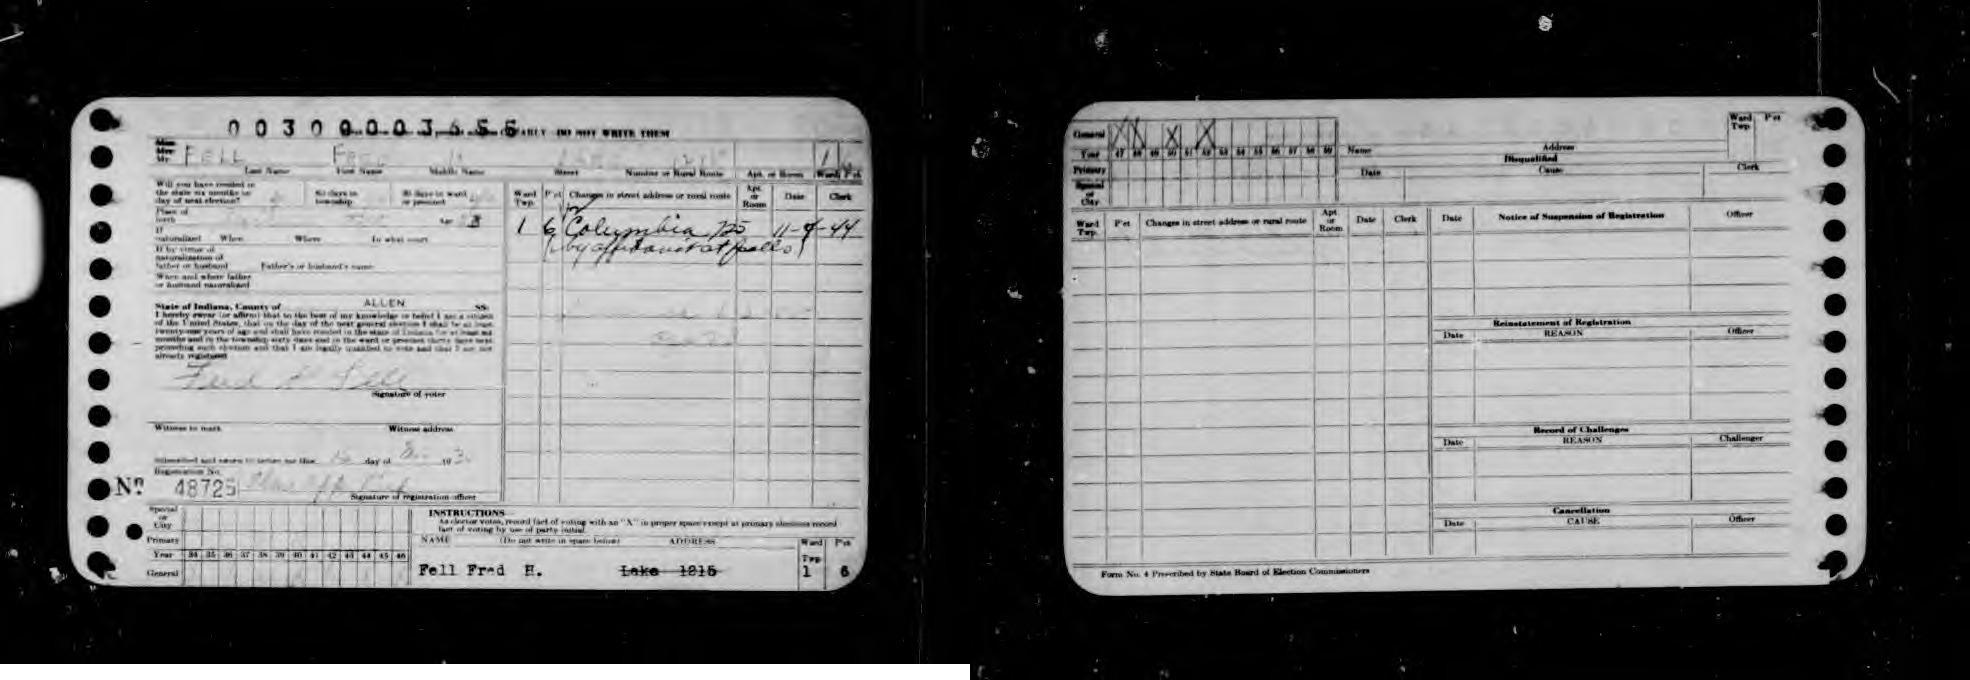 00300003656 CLEARLY DO NOT WRITE THEM
Mr. FELL Fred H Lake 1215 1 6
Last Name First Name Middle Name Street Number or Rural Route Apt. or Room Ward P'ct
Will you have resided in the state six months on day of next election?
60 days in township
30 days in ward or precinct
Place of birth Age
If naturalized When Where In what court
If by virtue of naturalization of father or husband Father's or husband's name
When and where father or husband naturalized
State of Indiana, County of ALLEN SS:
I hereby swear (or affirm) that to the best of my knowledge or belief I am a citizen
of the United States, that on the day of the next general election I shall be at least
twenty-one years of age and shall have resided in the state of Indiana for at least six
months and in the township sixty days and in the ward or precinct thirty days next
preceding such election and that I am legally qualified to vote and that I am not
already registered
Fred H Fell
Signature of voter
Witness to mark Witness address
Subscribed and sworn to before me this day of 193
Registration No.
No. 48725
Signature of registration officer
Ward Twp. P'ct Changes in street address or rural route Apt. or Room Date Clerk
1 6 Columbia 725 11-4-44
(by affidavit at polls)
Special or City
Primary
Year 34 35 36 37 38 39 40 41 42 43 44 45 46
General
INSTRUCTIONS
As elector votes, record fact of voting with an "X" in proper space except at primary elections record
fact of voting by use of party initial.
NAME (Do not write in space below) ADDRESS Ward Twp P'ct
Fell Fred H. Lake 1215 1 6
General X X X X
Year 47 48 49 50 51 52 53 54 55 56 57 58 59
Primary
Special or City
Name Address Ward Twp. P'ct
Disqualified
Date Cause Clerk
Ward Twp. P'ct Changes in street address or rural route Apt. or Room Date Clerk
Date Notice of Suspension of Registration Officer
Reinstatement of Registration
Date REASON Officer
Record of Challenges
Date REASON Challenger
Cancellation
Date CAUSE Officer
Form No. 4 Prescribed by State Board of Election Commissioners